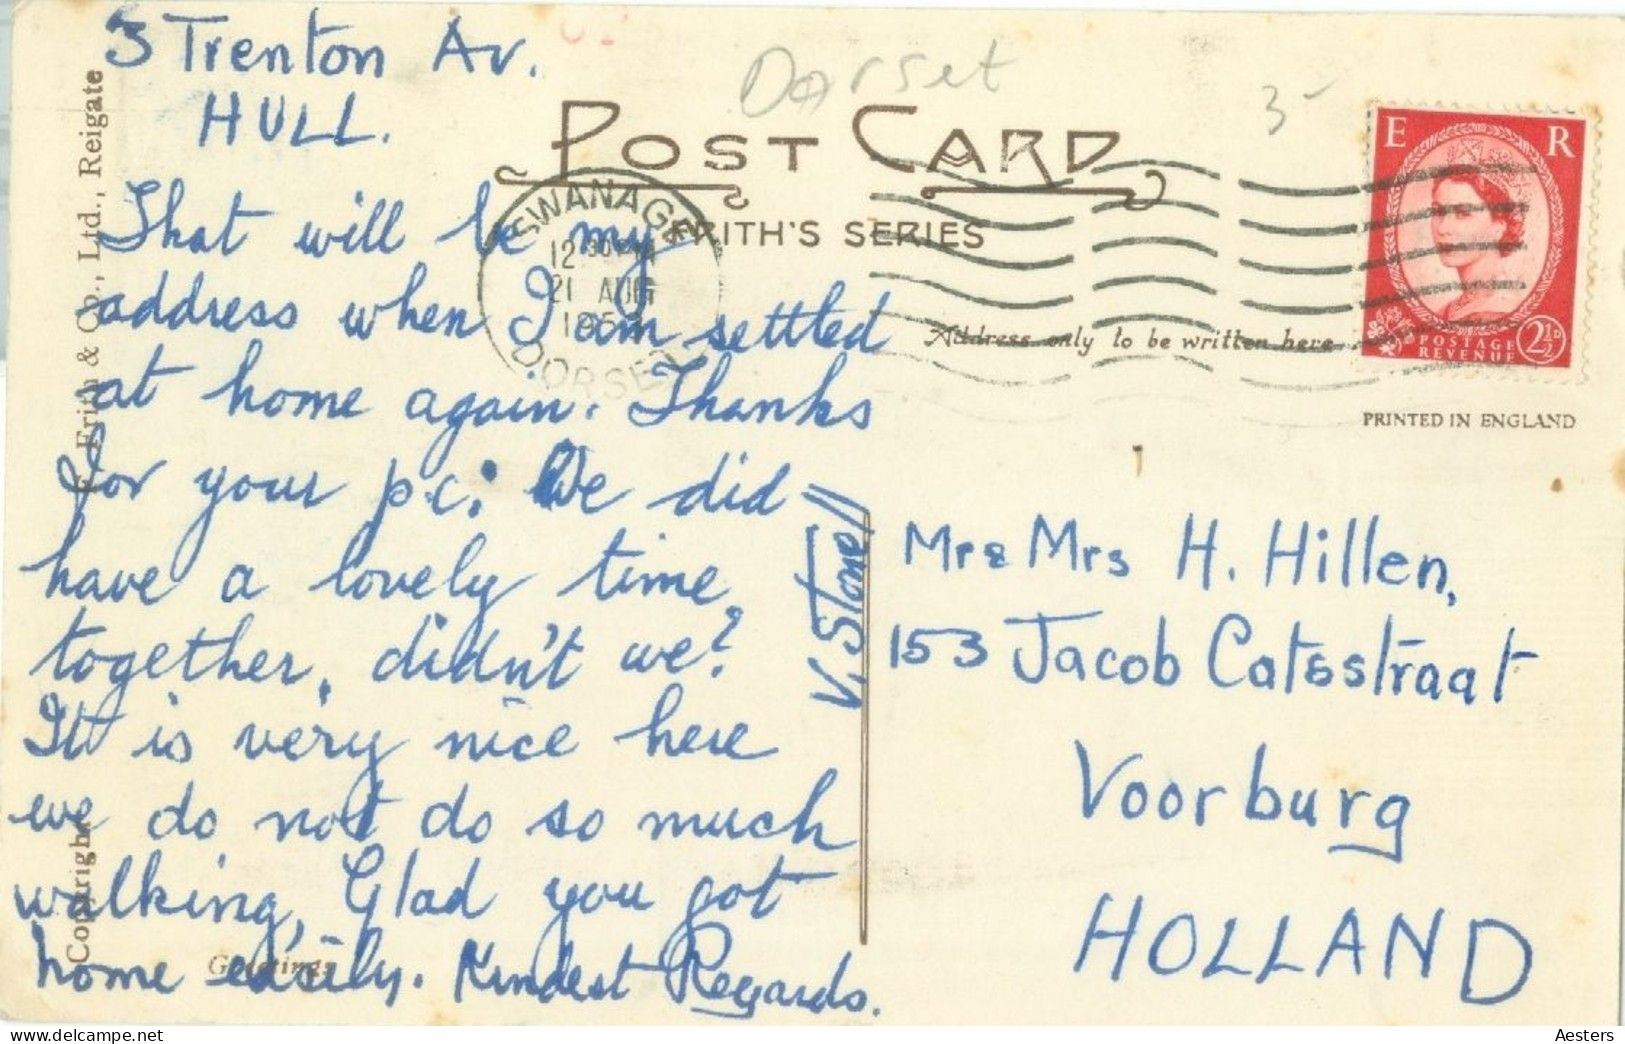 3 Trenton Av.
HULL.
That will be my
address when I am settled
at home again. Thanks
for your p.c. We did
have a lovely time
together, didn't we?
It is very nice here
we do not do so much
walking, Glad you got
home easily. Kindest Regards.
V. Stonell
Dorset
3-
POST CARD
FRITH'S SERIES
Address only to be written here
SWANAGE
12 30 PM
21 AUG
DORSET
E R
POSTAGE
REVENUE
2½D
PRINTED IN ENGLAND
Mr & Mrs H. Hillen,
153 Jacob Catsstraat
Voorburg
HOLLAND
Copyright
Frith & Co., Ltd., Reigate
Greetings
Aesters